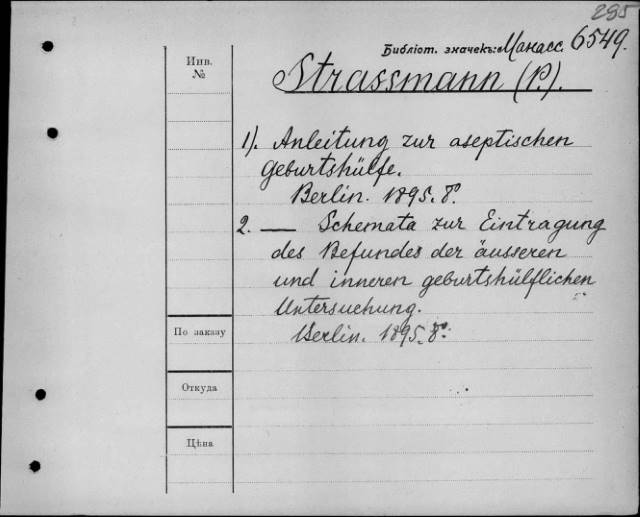 295
Библіот. значекъ: Манасс. 6549.
Инв.
№
Strassmann (P.).
1). Anleitung zur aseptischen
Geburtshülfe.
Berlin. 1895. 8º.
2. — Schemata zur Eintragung
des Befundes der äusseren
und inneren geburtshülflichen
Untersuchung.
Berlin. 1895. 8º.
По заказу
Откуда
Цѣна